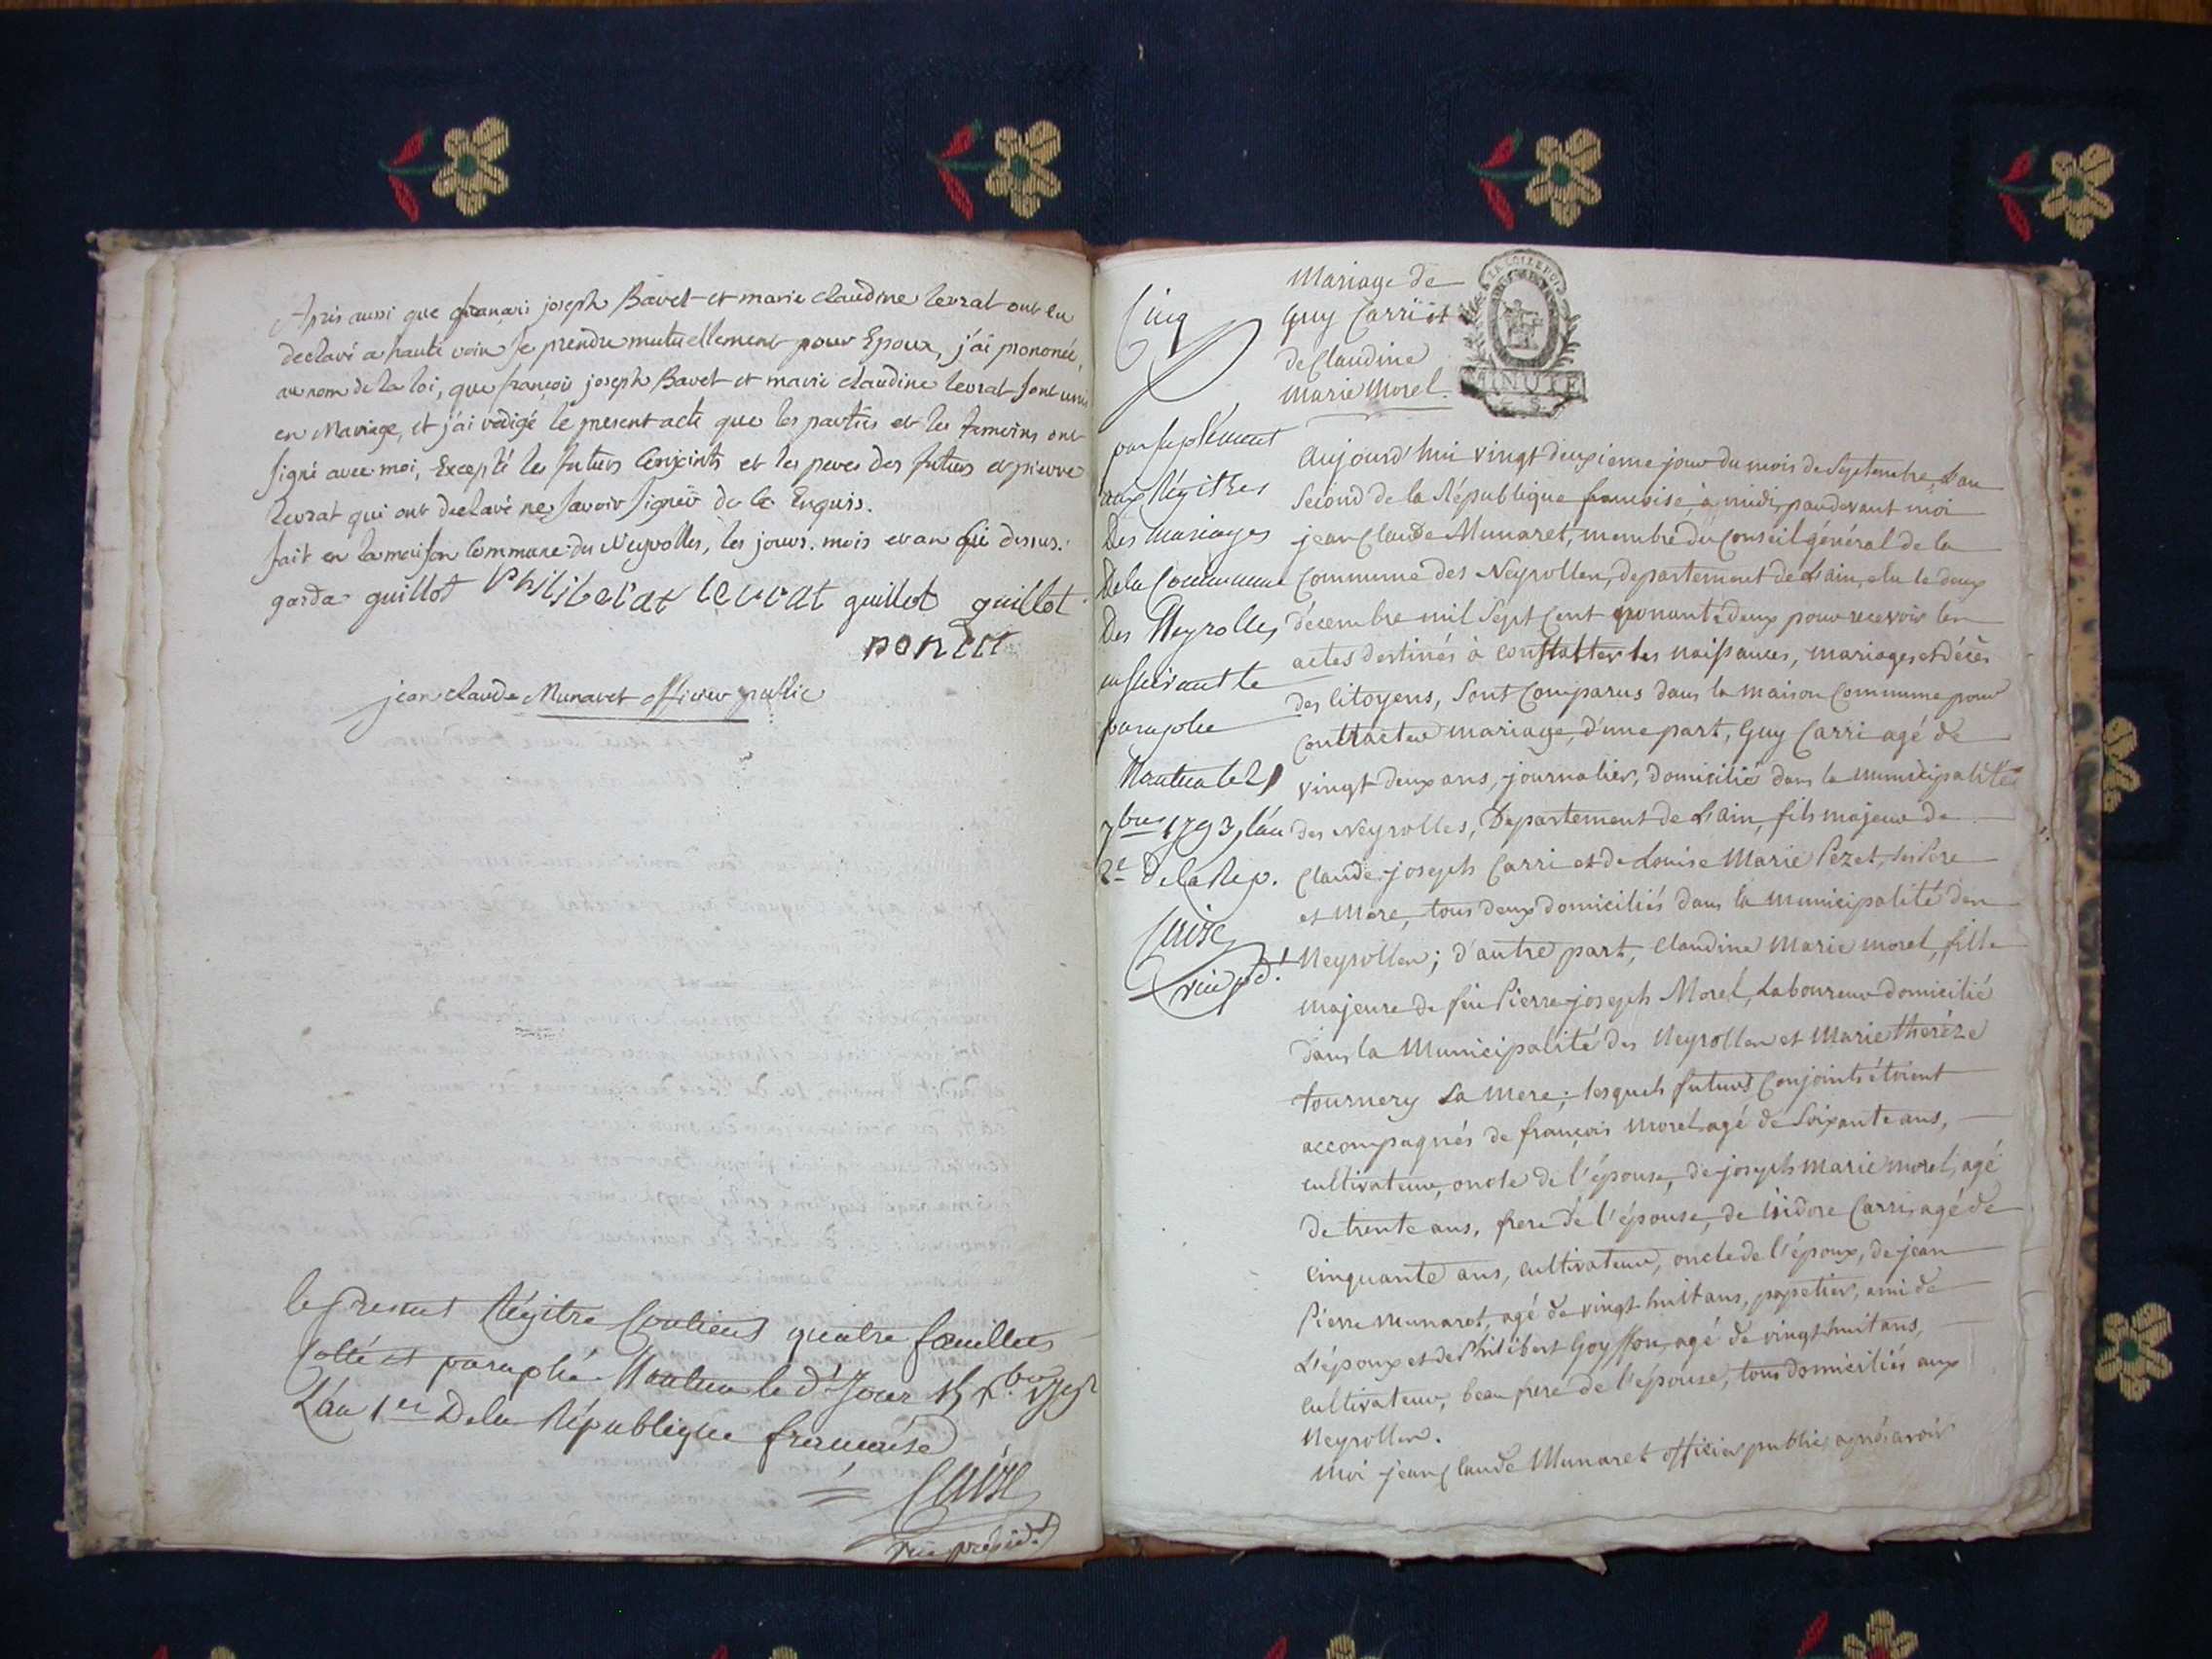 Apris aussi que francois joseph Bavet et marie claudine levrat ont eu
declaré a haute voix se prendre mutuellement pour Epoux, j'ai prononcé,
au nom de la loi, que françois joseph Bavet et marie claudine levrat sont unis
en Mariage, et j'ai redigé le present acte que les parties et les temoins ont
signé avec moi, Excepté les futurs Conjoints et les peres des futurs et pierre
levrat qui ont declaré ne savoir signer de ce Enquis.
fait en la maison Commune des Neyrolles, les jours. mois et an qui dessus.
guillot Philiberat levrat guillot guillot
poncet
jean claude Munaret officier public
le present Régitre Contient quatre feuillets
Cotté et paraphé Nantua le d. Jour 15
L'an 1er De la République francaise
vice présid.t
Cinq
Mariage de
Guy Carri et
de Claudine
Marie Morel.
LA LOI LE ROI
MINUTE
par suplément
aux Régitres
Des Mariages
De la Commune
Des Neyrolles
en suivant le
paraphe
Nantua le 21
7bre 1793, l'an
2e De la Rep.
vice pd.t
Aujourd'hui vingt deuxieme jour du mois de Septembre, L'an
Second de la République francoise à midi, pardevant moi
jean Claude Munaret, membre du Conseil général de la
Commune des Neyrolles, departement de L'ain, elu le deux
décembre mil Sept Cent nonante deux pour recevoir les
actes destinés à constatter les naissances, mariages et décès
des Citoyens, Sont Comparus dans la maison Commune pour
Contracter mariage, d'une part, Guy Carri agé de
vingt deux ans, journalier, domicilié dans la municipalité
des Neyrolles, Departement de L'ain, fils majeur de
Claude joseph Carri et de Louise Marie Pezet, ses Pere
et Mere, tous deux domiciliés dans la municipalité des
Neyrolles; d'autre part, Claudine Marie Morel, fille
majeure de feu Pierre joseph Morel, Laboureur domicilié
dans la Municipalité des Neyrolles et Marie thereze
tournery Sa Mere; lesquels futurs Conjoints étoient
accompagnés de françois Morel agé de Soixante ans,
cultivateur, oncle de l'épouse, de joseph marie morel, agé
de trente ans, frere de l'épouse, de isidore Carri, agé de
Cinquante ans, cultivateur, oncle de l'époux, de jean
Pierre Munaret, agé de vingt huit ans, papetier, ami de
L'époux et de Philibert Goyffon, agé de vingt huit ans,
Cultivateur, beau frere de l'épouse, tous domiciliés aux
Neyrolles.
Moi jean Claude Munaret officier public, après avoir